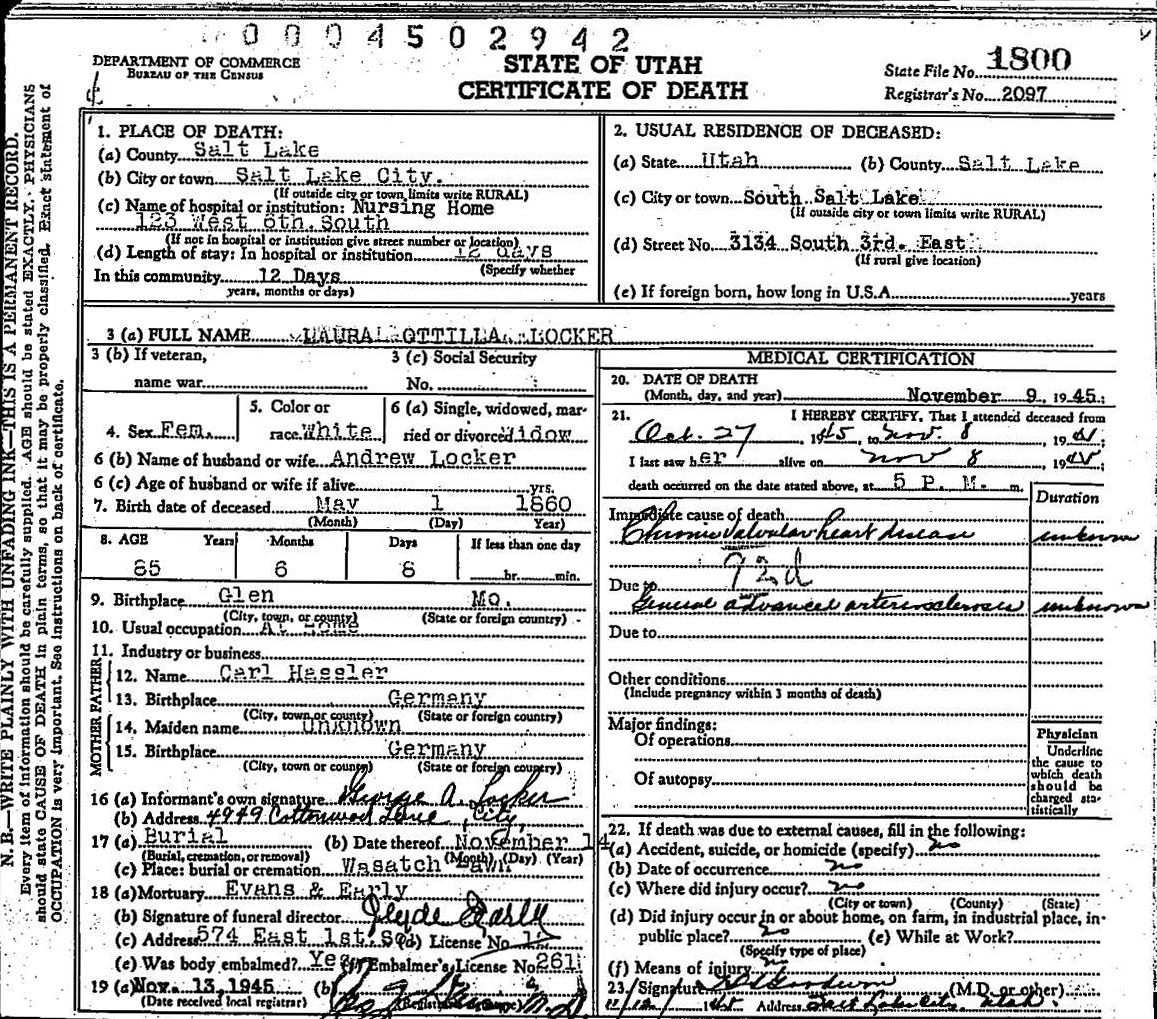 0004502942
DEPARTMENT OF COMMERCE
BUREAU OF THE CENSUS
STATE OF UTAH
CERTIFICATE OF DEATH
State File No. 1800
Registrar's No. 2097
N. B.—WRITE PLAINLY WITH UNFADING INK—THIS IS A PERMANENT RECORD.
Every item of information should be carefully supplied. AGE should be stated EXACTLY. PHYSICIANS
should state CAUSE OF DEATH in plain terms, so that it may be properly classified. Exact statement of
OCCUPATION is very important. See instructions on back of certificate.
1. PLACE OF DEATH:
(a) County Salt Lake
(b) City or town Salt Lake City.
(If outside city or town limits write RURAL)
(c) Name of hospital or institution: Nursing Home
123 West 6th. South
(If not in hospital or institution give street number or location)
(d) Length of stay: In hospital or institution 12 days
(Specify whether
In this community 12 Days
years, months or days)
2. USUAL RESIDENCE OF DECEASED:
(a) State Utah (b) County Salt Lake
(c) City or town South Salt Lake
(If outside city or town limits write RURAL)
(d) Street No. 3134 South 3rd. East
(If rural give location)
(e) If foreign born, how long in U.S.A. years
3 (a) FULL NAME LAURA OTTILLA LOCKER
3 (b) If veteran,
name war
3 (c) Social Security
No.
4. Sex Fem.
5. Color or
race White
6 (a) Single, widowed, mar-
ried or divorced Widow
6 (b) Name of husband or wife Andrew Locker
6 (c) Age of husband or wife if alive yrs.
7. Birth date of deceased May 1 1860
(Month) (Day) Year)
8. AGE Years Months Days If less than one day
85 6 8 hr. min.
9. Birthplace Glen Mo.
(City, town, or county) (State or foreign country)
10. Usual occupation At Home
11. Industry or business
FATHER
12. Name Carl Hassler
13. Birthplace Germany
(City, town or county) (State or foreign country)
MOTHER
14. Maiden name Unknown
15. Birthplace Germany
(City, town or county) (State or foreign country)
16 (a) Informant's own signature George A. Locker
(b) Address 4949 Cottonwood Lane, City
17 (a) Burial (b) Date thereof November 14
(Burial, cremation, or removal) (Month) (Day) (Year)
(c) Place: burial or cremation Wasatch Lawn
18 (a) Mortuary Evans & Early
(b) Signature of funeral director Clyde Early
(c) Address 574 East 1st. So. (d) License No.
(e) Was body embalmed? Yes (f) Embalmer's License No. 261
19 (a) Nov. 13, 1945 (b)
(Date received local registrar)
MEDICAL CERTIFICATION
20. DATE OF DEATH
(Month, day, and year) November 9, 1945;
21. I HEREBY CERTIFY, That I attended deceased from
Oct. 27, 1945, to Nov. 8, 1945;
I last saw her alive on Nov 8, 1945;
death occurred on the date stated above, at 5 P. M. m.
Duration
Immediate cause of death
Chronic valvular heart disease unknown
92d
Due to
General advanced arteriosclerosis unknown
Due to
Other conditions
(Include pregnancy within 3 months of death)
Major findings:
Of operations
Of autopsy
Physician
Underline
the cause to
which death
should be
charged sta-
tistically
22. If death was due to external causes, fill in the following:
(a) Accident, suicide, or homicide (specify) no
(b) Date of occurrence no
(c) Where did injury occur? no
(City or town) (County) (State)
(d) Did injury occur in or about home, on farm, in industrial place, in
public place? no (e) While at Work?
(Specify type of place)
(f) Means of injury no
23. Signature (M.D. or other)
11/12/1945 Address Salt Lake City, Utah.